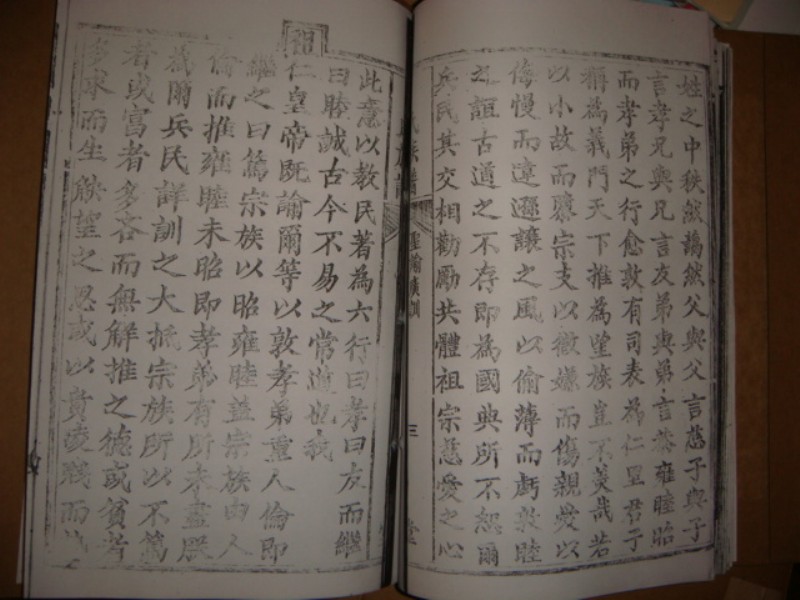 姓之中秩然藹然父與父言慈子與子
言孝兄與兄言友弟與弟言恭雍睦昭
而孝弟之行愈敦有司表為仁里君子
稱為義門天下推為望族豈不美哉若
以小故而隳宗支以微嫌而傷親愛以
侮慢而違遜讓之風以偷薄而虧敦睦
之誼古道之不存即為國典所不恕爾
兵民其交相勸勵共體祖宗慈愛之心
氏族譜
聖諭廣訓
三
堂
此意以教民著為六行曰孝曰友而繼
曰睦誠古今不易之常道也我
祖仁皇帝既諭爾等以敦孝弟重人倫即
繼之曰篤宗族以昭雍睦蓋宗族由人
倫而推雍睦未昭即孝弟有所未盡朕
為爾兵民詳訓之大抵宗族所以不篤
者或富者多吝而無解推之德或貧者
多求而生觖望之思或以貴凌賤而